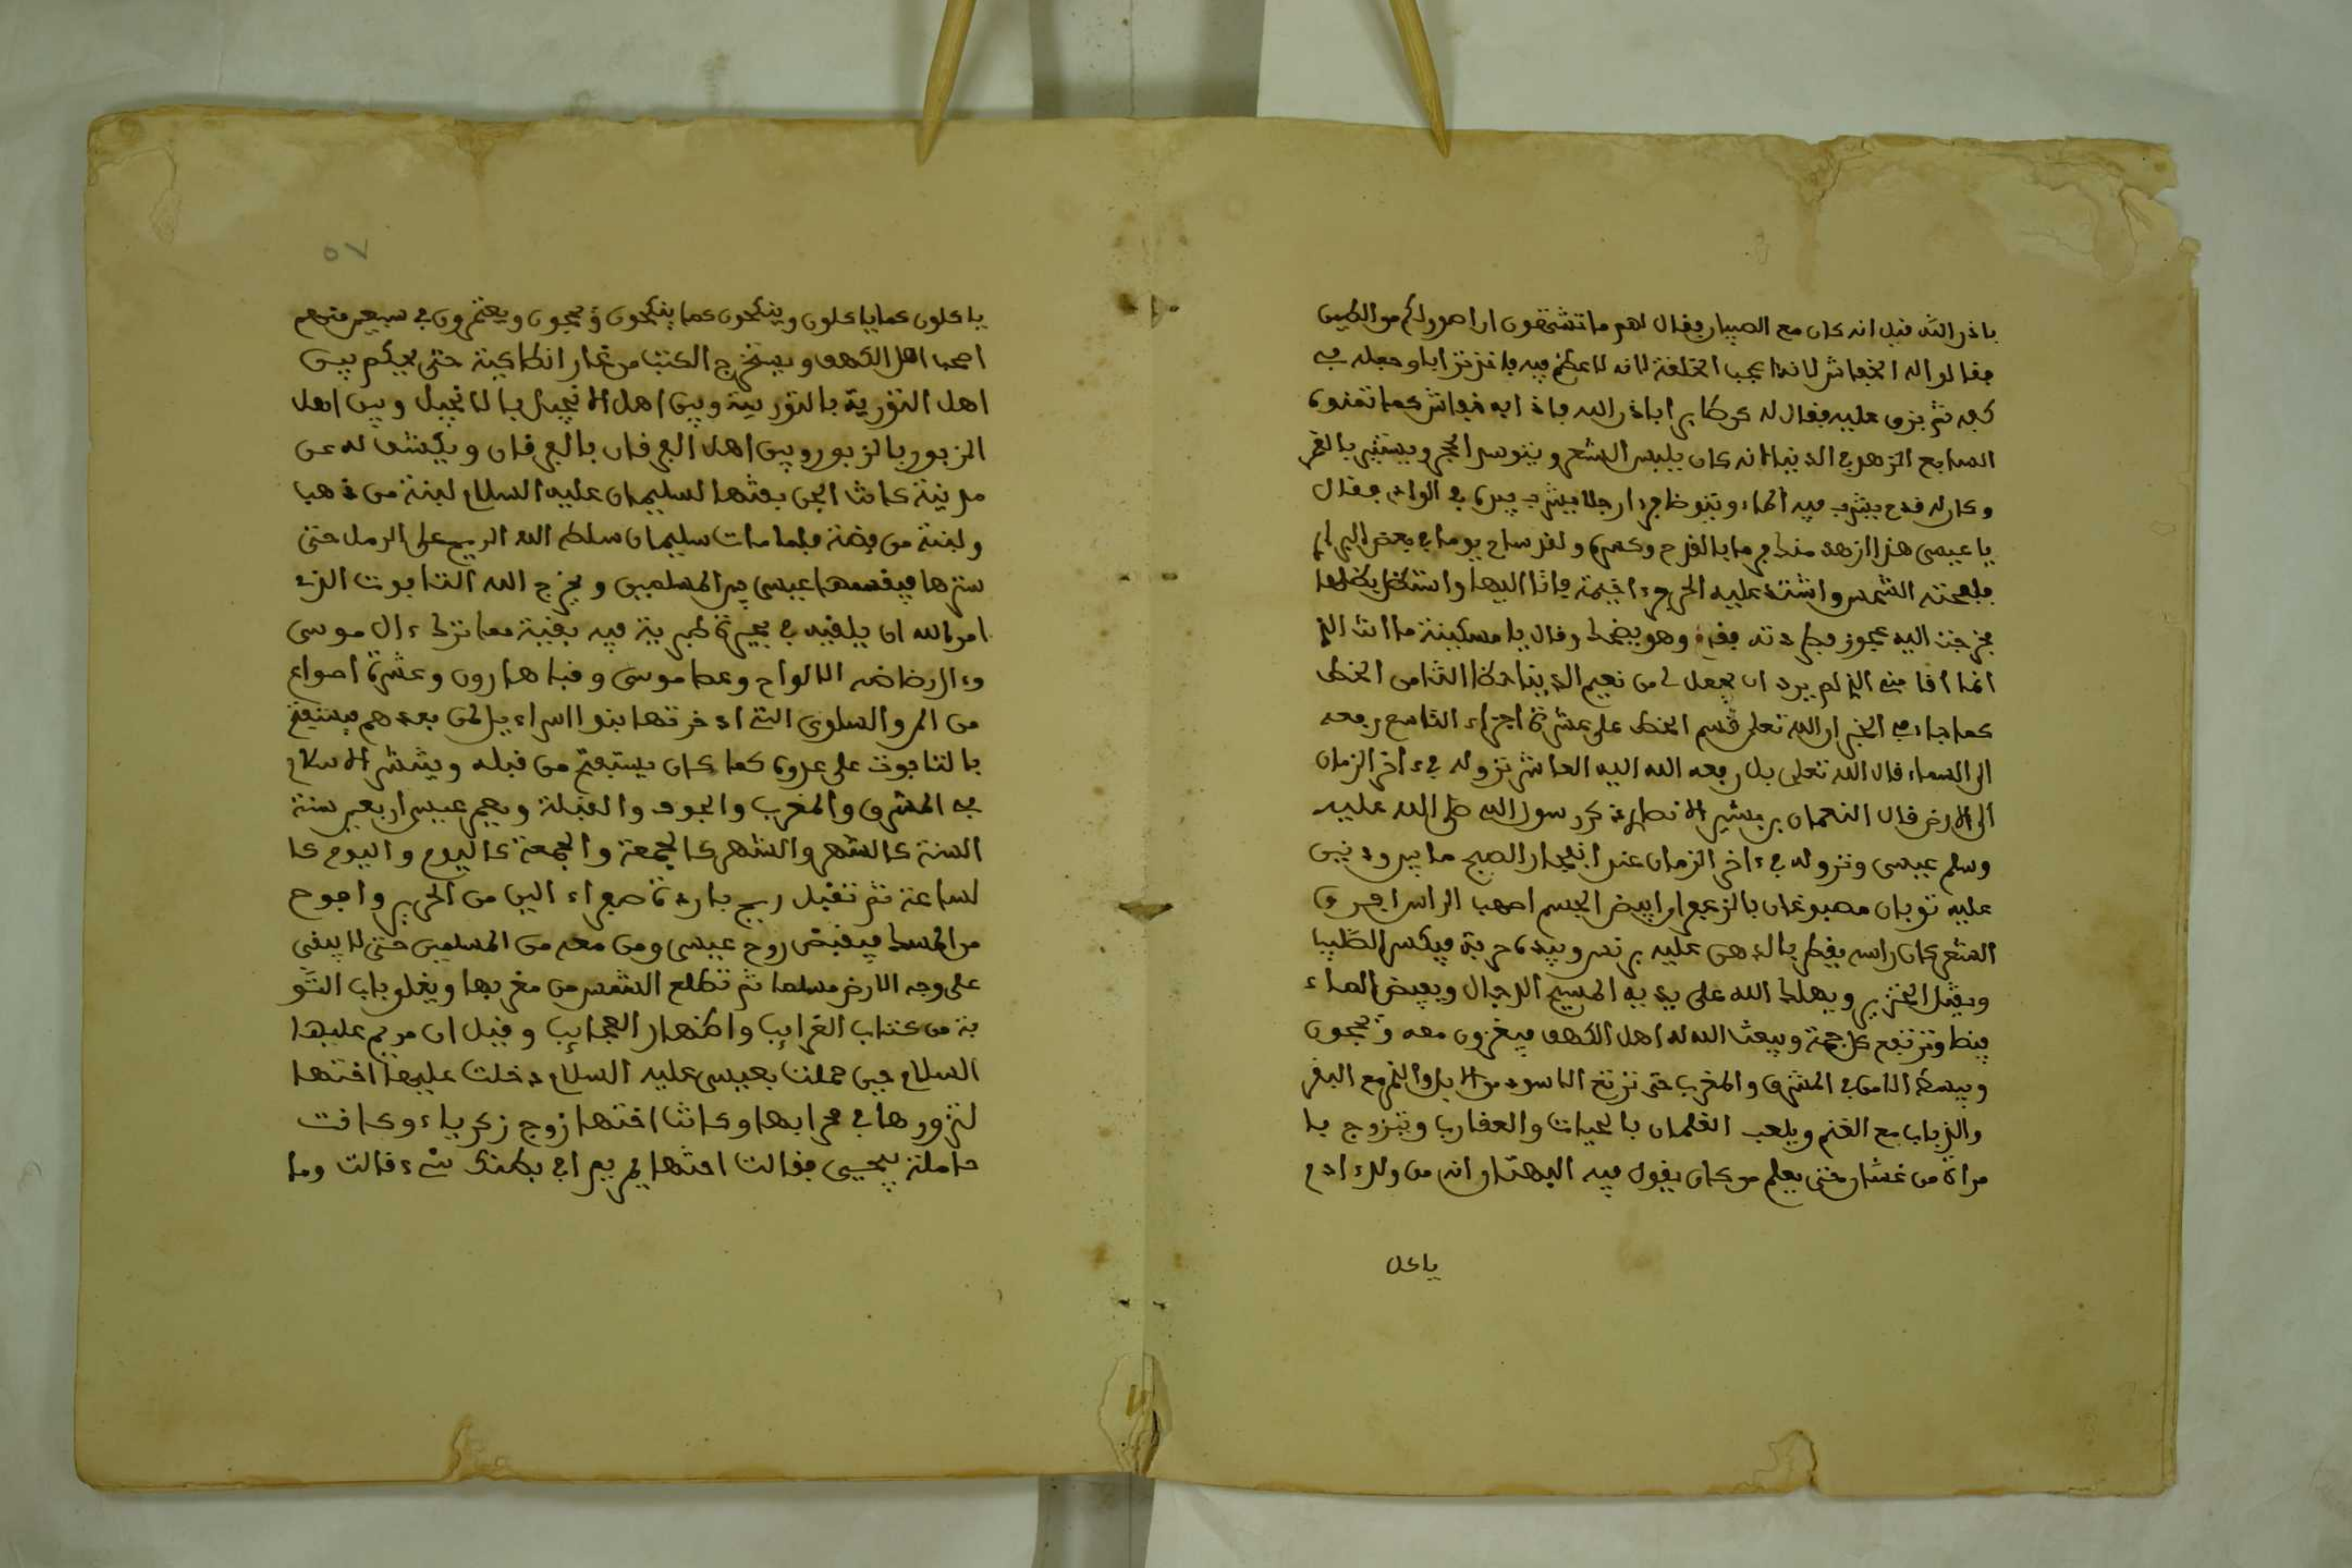 باذن الله قيل انه كان مع الصبيان فقال لهم ما تشتهون ان اصور لكم من الطين
فقالوا له الخفاش لانه اعجب الخلقة لانه لا عظم فيه فاخذ ترابا وجعله في
كفه ثم بزق عليه فقال له كن طايرا باذن الله فاذا به خفاش كما تمنوه
السابع الزهد في الدنيا انه كان يلبس الشعر ويتوسد الحجر ويستنير بالقمر
وكان له قدح يشرب فيه الماء ويتوضا فرءا رجلا يشرب بيده في الوادي فقال
يا عيسى هذا ازهد منك فرما بالقدح وكسره ولقد ساح يوما في بعض البراري
فلفحته الشمس واشتد عليه الحر فرءا خيمة فاتا اليها واستظل بظلها
فخرجت اليه عجوز فطردته فقام وهو يضحك وقال يا مسكينة ما انت الذي
انما اقامني الذي لم يرد ان يجعل لي من نعيم الدنيا حظا الثامن الخط
كما جاء في الخبر ان الله تعلى قسم الخط على عشرة اجزاء التاسع رفعه
الى السماء قال الله تعلى بل رفعه الله اليه العاشر نزوله في ءاخر الزمان
الى الارض قال النعمان بن بشير الانصاري ذكر رسول الله صلى الله عليه
وسلم عيسى ونزوله في ءاخر الزمان عند انفجار الصبح ما بين
عليه ثوبان مصبوغان بالزعفران ابيض الجسم اصهب الراس افرق
الشعر كان راسه يقطر بالدهن عليه برنس وبيده حربة فيكسر الصليب
ويقتل الخنزير ويهلك الله على يديه المسيح الدجال ويفيض الماء
وترتفع كل حمة ويبعث الله له اهل الكهف فيغزون معه ويحجون
ويبسط الامن في المشرق والمغرب حتى ترتع الاسود مع الابل والنمر مع البقر
والذياب مع الغنم ويلعب الغلمان بالحيات والعقارب ويتزوج با
مراة من غسان حتى يعلم من كان يقول فيه البهتان انه من ولد ءادم
ياكل
٥٧
ياكلون كما ياكلون وينكحون كما ينكحون ويحجون ويعتمرون في سبعين منهم
اصحاب اهل الكهف ويستخرج الكتب من غار انطاكية حتى يحكم بين
اهل التورية بالتورية وبين اهل الانجيل بالانجيل وبين اهل
الزبور بالزبور وبين اهل الفرقان بالفرقان ويكشف له عن
مدينة كانت الجن بنتها لسليمان عليه السلام لبنة من ذهب
ولبنة من فضة فلما مات سليمان سلط الله الريح على الرمل حتى
سترها فيقسمها عيسى بين المسلمين ويخرج الله التابوت الذي
امر الله ان يلقيه في بحيرة طبرية فيه بقية مما ترك ءال موسى
ورضاض الالواح وعصا موسى وقبا هارون وعشرة اصواع
من المن والسلوى التي ادخرتها بنوا اسراءيل لمن بعدهم يستفتح
بالتابوت على عدوه كما كان يستفتح من قبله وينتشر الاسلام
في المشرق والمغرب والجوف والقبلة ويعمر عيسى اربعين سنة
السنة كالشهر والشهر كالجمعة والجمعة كاليوم واليوم كا
لساعة ثم تقبل ريح باردة صفراء الين من الحرير وافوح
من المسك فيقبض روح عيسى ومن معه من المسلمين حتى لا يبقى
على وجه الارض مسلما ثم تطلع الشمس من مغربها ويغلق باب التو
بة من كتاب الغرايب واظهار العجايب وقيل ان مريم عليها
السلام حين حملت بعيسى عليه السلام دخلت عليها اختها
لتزورها في محرابها وكانت اختها زوج زكرياء وكانت
حاملة بيحيى فقالت اختها يمريم افي بطنك شيء قالت وما